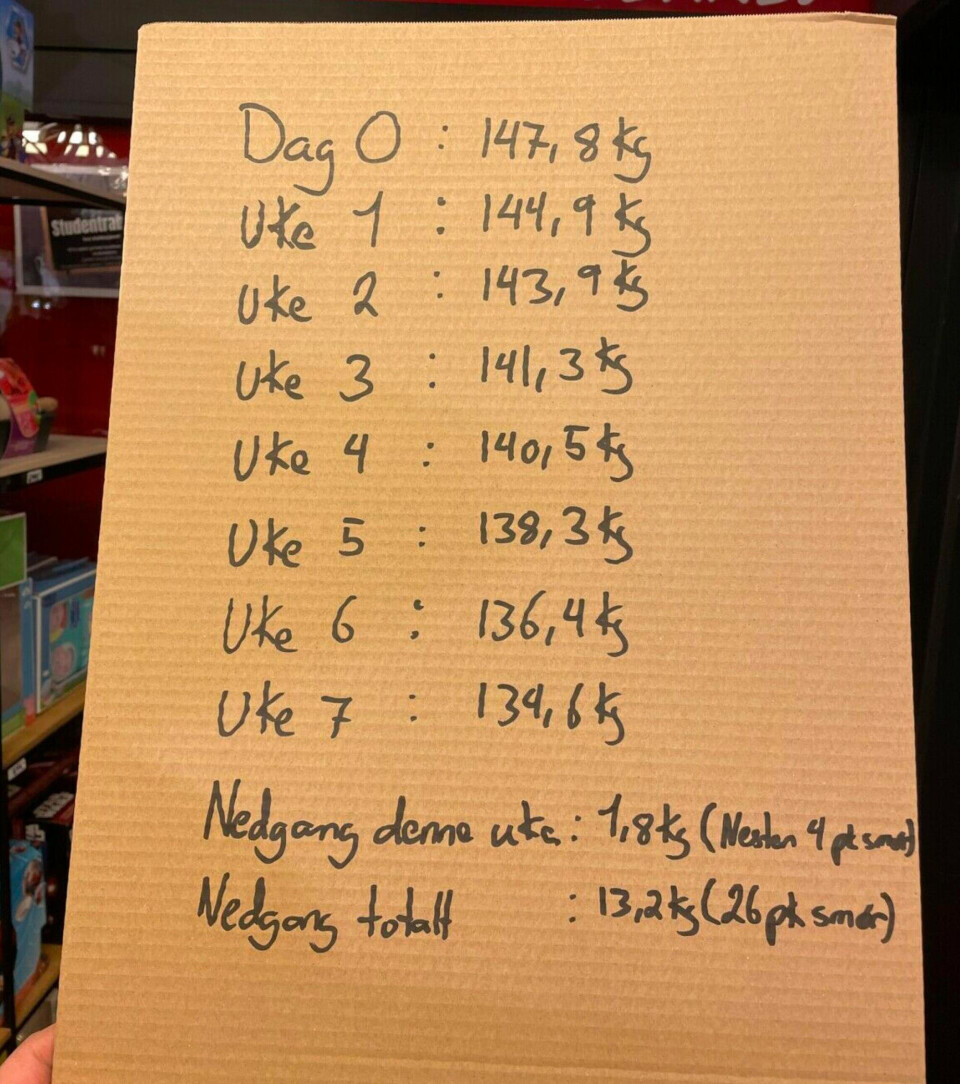 Studentrab
Dag 0 : 147,8 kg
Uke 1 : 144,9 kg
Uke 2 : 143,9 kg
Uke 3 : 141,3 kg
Uke 4 : 140,5 kg
Uke 5 : 138,3 kg
Uke 6 : 136,4 kg
Uke 7 : 134,6 kg
Nedgang denne uke : 1,8 kg (Nesten 4 pk smør)
Nedgang totalt : 13,2 kg (26 pk smør)